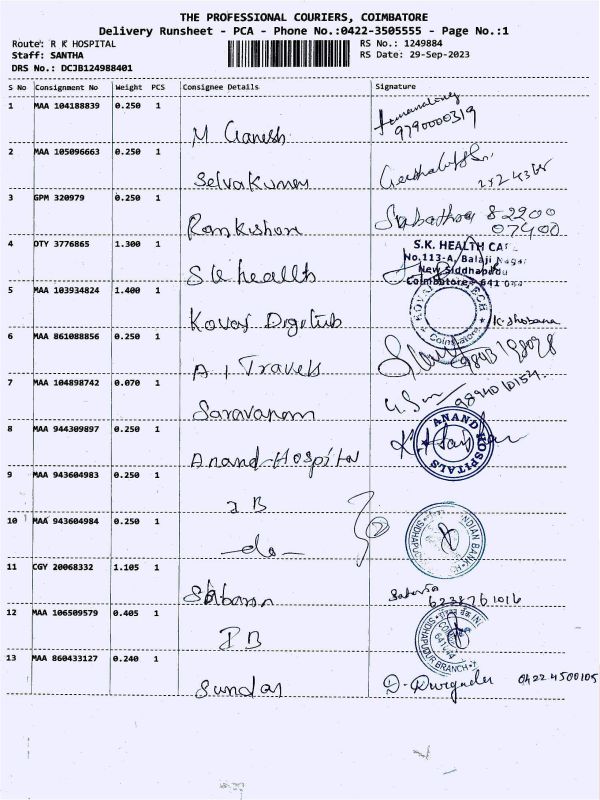 THE PROFESSIONAL COURIERS, COIMBATORE
Delivery Runsheet - PCA - Phone No.:0422-3505555 - Page No.:1
Route: R K HOSPITAL
Staff: SANTHA
DRS No.: DCJB124988401
RS No.: 1249884
RS Date: 29-Sep-2023
S No Consignment No Weight PCS Consignee Details Signature
1 MAA 104188839 0.250 1
M Ganesh 9790000319
2 MAA 105096663 0.250 1
Selvakumar
3 GPM 320979 0.250 1
Ramkishore 82200
07400
4 OTY 3776865 1.300 1
S.K. HEALTH CA
No.113-A, Balaji Nagar
New Siddhapudu
Coimbatore - 641 044
S K health
5 MAA 103934824 1.400 1
Kovai Digitub K. Shobana
KOVAI TECH
Coimbatore
6 MAA 861088856 0.250 1
A1 Travels
7 MAA 104898742 0.070 1
Saravanan
8 MAA 944309897 0.250 1
Anand Hospital
ANAND HOSPITALS
9 MAA 943604983 0.250 1
IB
10 MAA 943604984 0.250 1
-do-
INDIAN BANK
SIDHAPUDUR
11 CGY 20068332 1.105 1
6238761016
12 MAA 106509579 0.405 1
IB
SIDHAPUDUR BRANCH
641 044
13 MAA 860433127 0.240 1
Sundar 04224500105